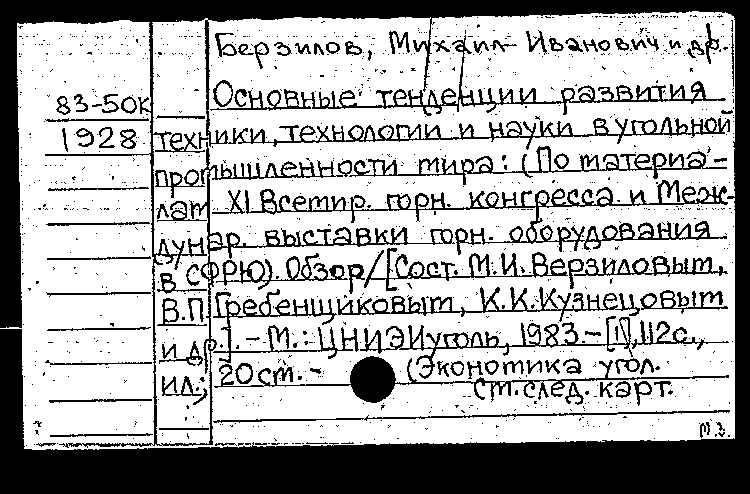 Берзилов, Михаил Иванович и др.
83-50К Основные тенденции развития
1928 техники, технологии и науки в угольной
промышленности мира: (По материа-
лам XI Всемир. горн. конгресса и Меж-
дунар. выставки горн. оборудования
в СФРЮ). Обзор/[Сост. М.И. Верзиловым,
В.П. Гребенщиковым, К.К. Кузнецовым
и др.]. - М.: ЦНИЭИуголь, 1983. - [1], 112 с.,
ил.; 20 см. - (Экономика угол.
См. след. карт.
М.З.